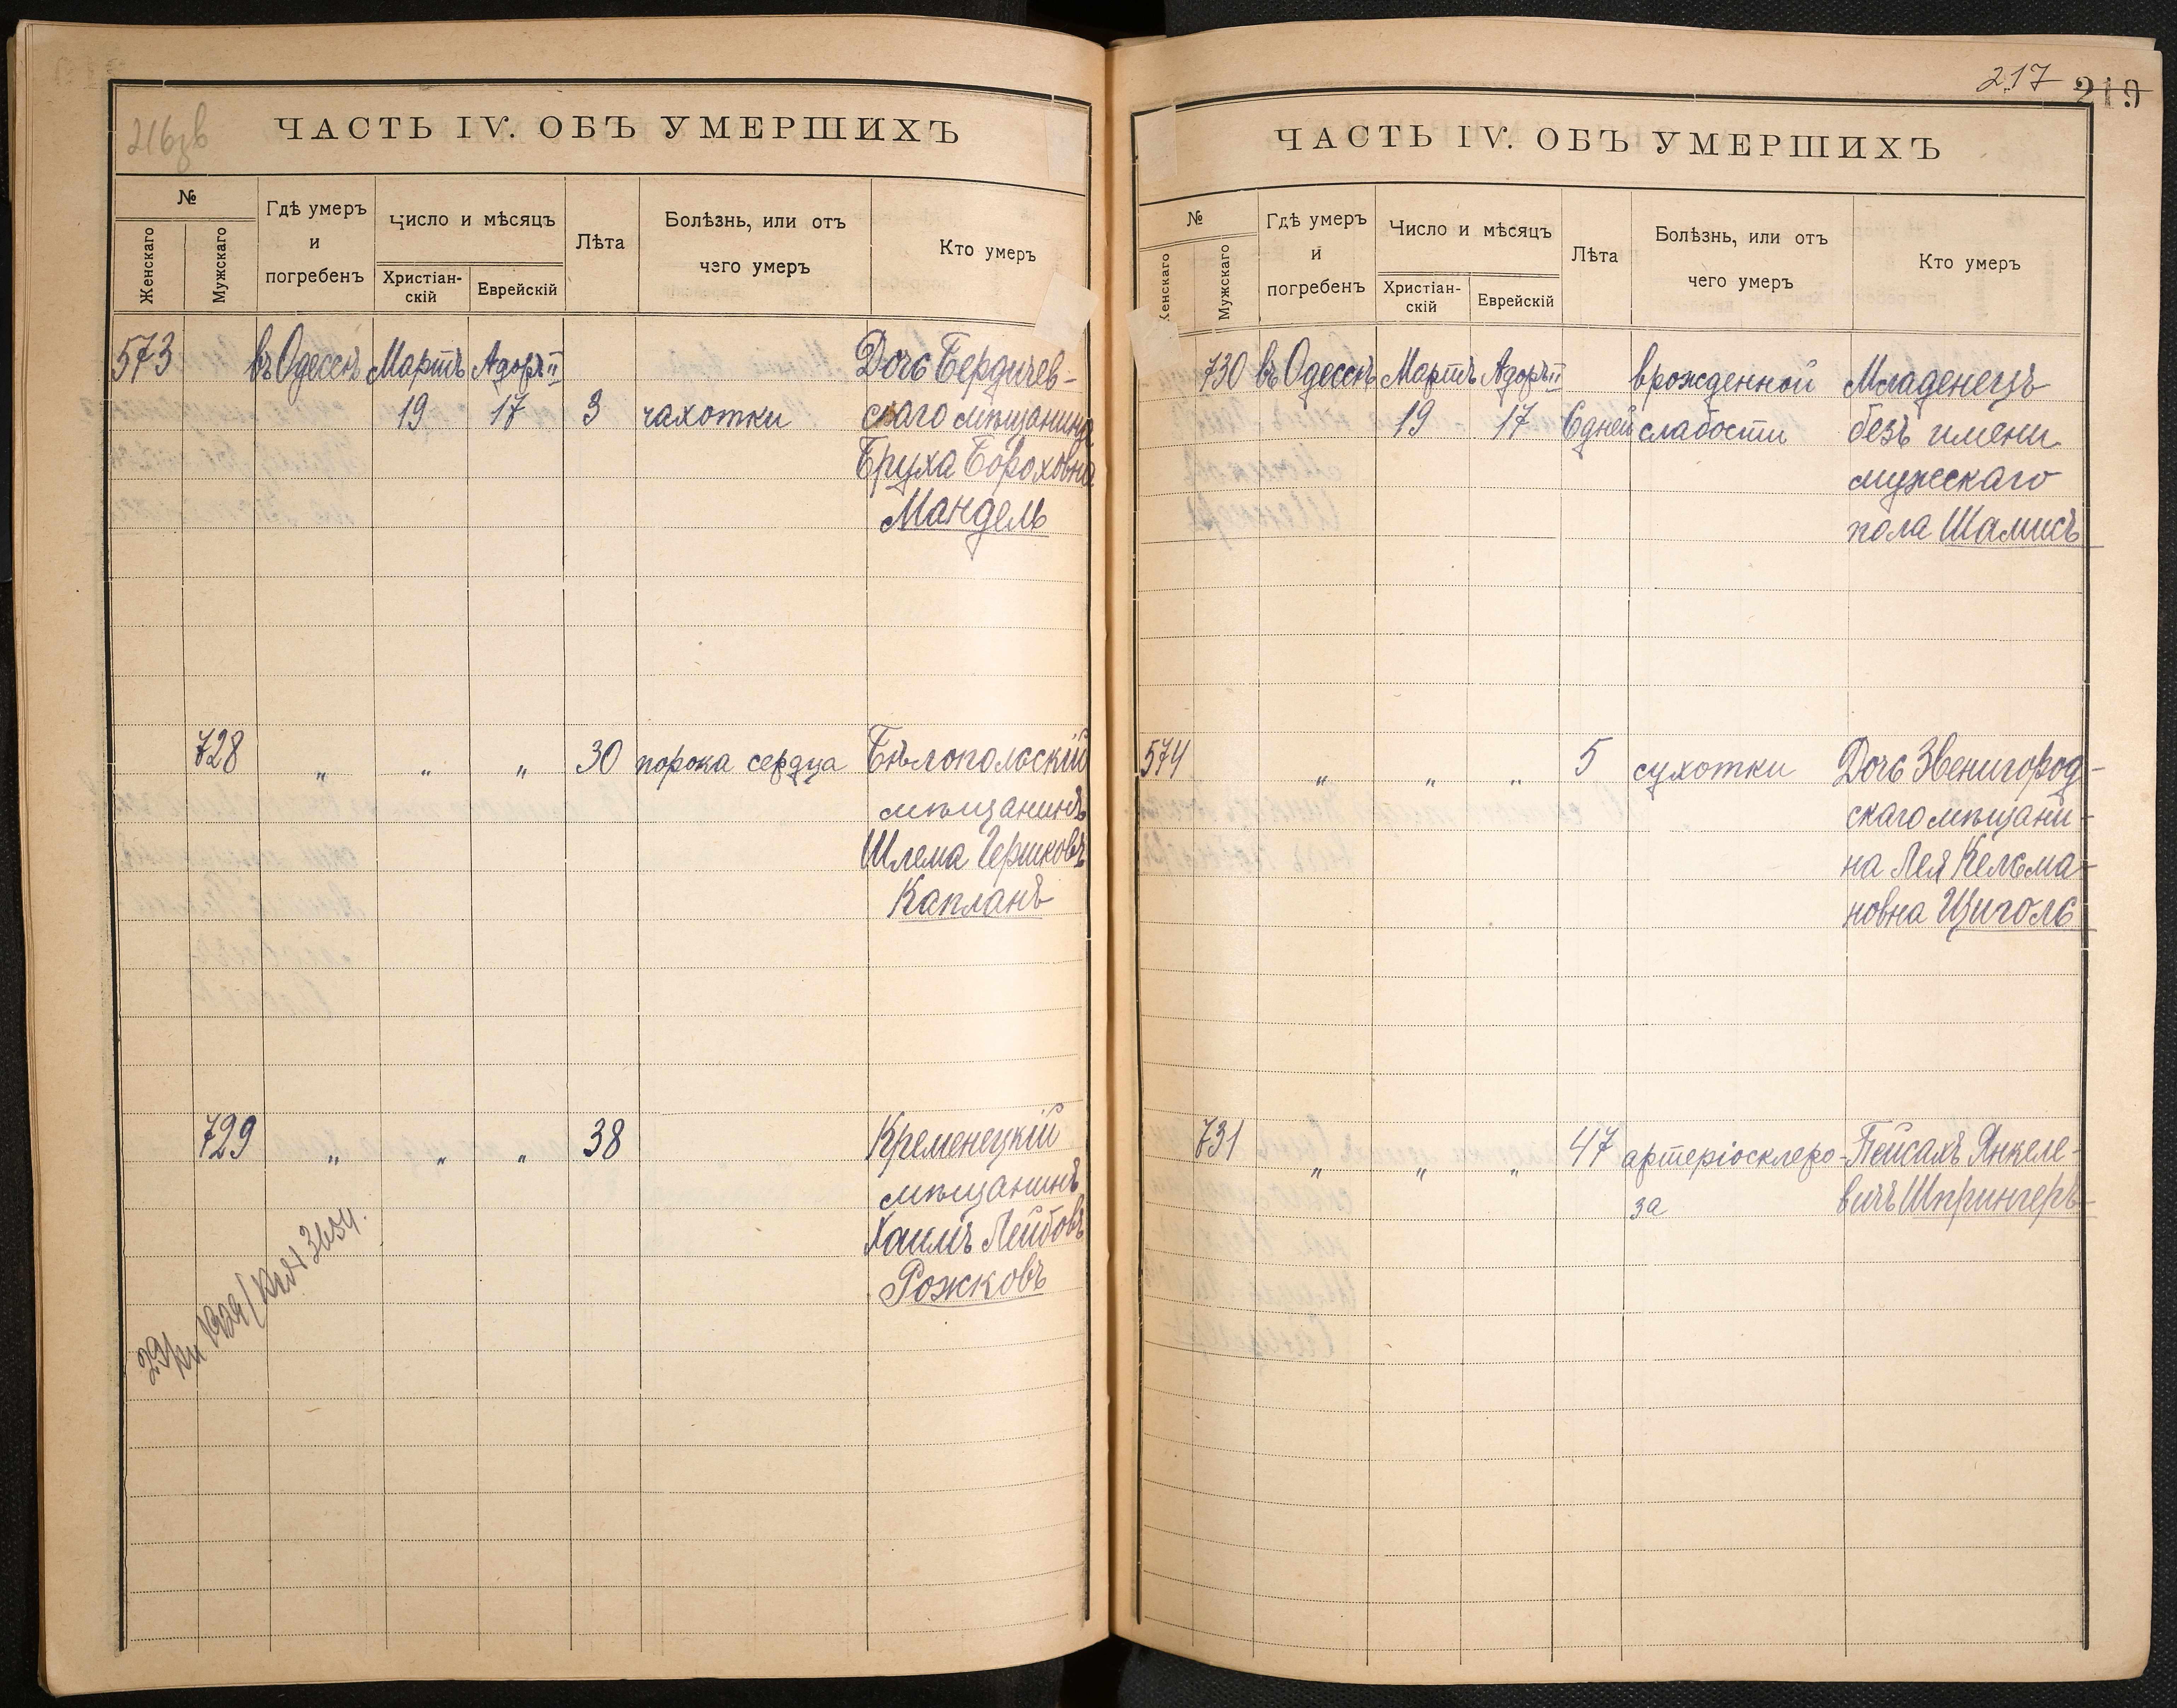 216зв
ЧАСТЬ IV. ОБЪ УМЕРШИХЪ
№
Женскаго
Мужскаго
Гдѣ умеръ
и
погребенъ
Число и мѣсяцъ
Христіан-
скій
Еврейскій
Лѣта
Болѣзнь, или отъ
чего умеръ
Кто умеръ
573 въ Одессѣ Мартъ Адоръ II Дочь Бердичев-
19 17 3 чахотки скаго мѣщанина
Бруха Бороховна
Мандель
728 „ „ „ 30 порока сердца Бѣлопольскій
мѣщанинъ
Шлема Гершковъ
Капланъ
729 „ „ „ 38 Кременецкій
мѣщанинъ
Хаимъ Лейбовъ
Рожковъ
217 219
ЧАСТЬ IV. ОБЪ УМЕРШИХЪ
№
Женскаго
Мужскаго
Гдѣ умеръ
и
погребенъ
Число и мѣсяцъ
Христіан-
скій
Еврейскій
Лѣта
Болѣзнь, или отъ
чего умеръ
Кто умеръ
730 въ Одессѣ Мартъ Адоръ II врожденной Младенецъ
19 17 6 дней слабости безъ имени
мужескаго
пола Шамисъ
574 „ „ „ 5 сухотки Дочь Звенигород-
скаго мѣщани-
на Лея Кельма-
новна Циголь
731 „ „ „ 47 артеріосклеро- Пейсахъ Янкеле-
за вичъ Шпрингеръ